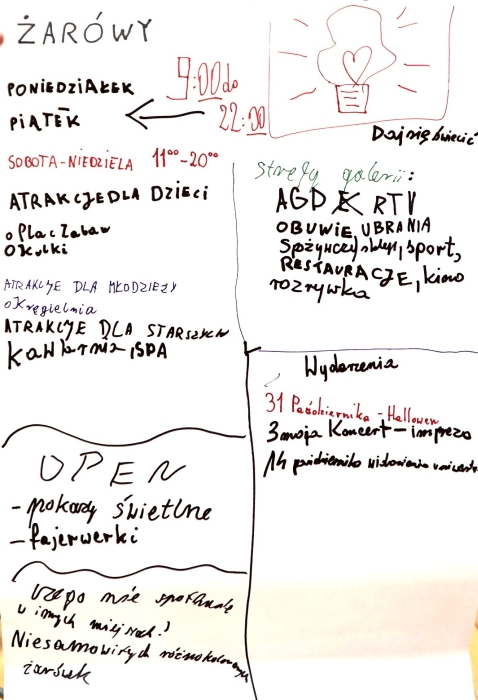 ŻARÓWY
PONIEDZIAŁEK
PIĄTEK
9:00 do
22:00
SOBOTA-NIEDZIELA 11⁰⁰-20⁰⁰
ATRAKCJE DLA DZIECI
o Plac Zabaw
o Kulki
ATRAKCJE DLA MŁODZIEŻY
o Kręgielnia
ATRAKCJE DLA STARSZYCH
Kawiarnia, SPA
Daj się świecić
Strefy galerii:
AGD RTV
OBUWIE, UBRANIA
Spożywczy sklep, sport,
RESTAURACJE, kino
rozrywka
Wydarzenia
31 Października - Hallowen
3 maja Koncert - impreza
14 października
OPEN
- pokazy świetlne
- fajerwerki
czego nie spotkacie
w innych miejscach?
Niesamowitych różnokolorowych
żarówek